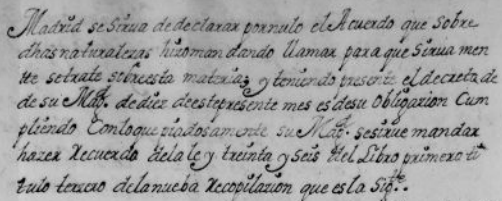 Madrid se sirva de declarar por nulo el Acuerdo que sobre
dhas naturalezas hizo man dando llamar para que sirua men
tte se trate sobre esta materia, y teniendo presente el decreta de
de su Magd. de diez de este presente mes es de su obligazion Cum
pliendo Con lo que piadosamente su Magd. se sirue mandar
hazer Recuerdo de la ley treinta y seis del Libro primero ti
tulo terzero de la nueba Recopilazion que es la Sigte.